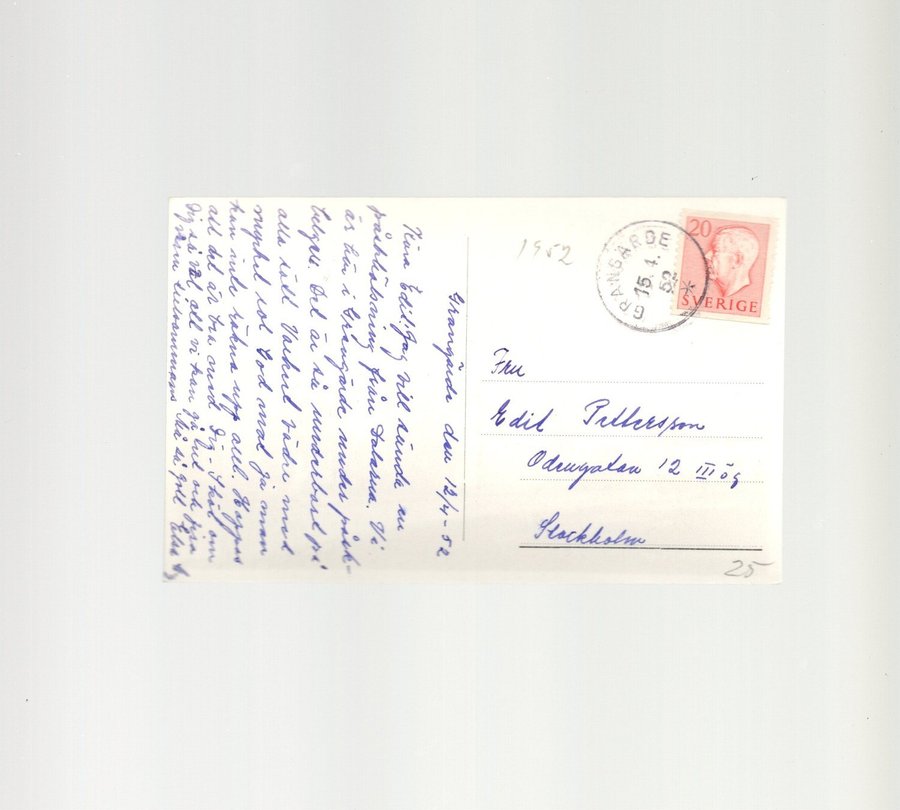 Grangärde den 12/4-52
Kära Edit! Jag vill sända en
påskhälsning från Dalarna. Vi
är här i Grangärde under påsk-
helgen. Det är så underbart på
alla sätt Vackert väder med
mycket sol God mat ja man
kan inte räkna upp allt. Hoppas
att det är bra med Dig. Sköt om
Dig så väl att vi kan gå ut och fira
våren tillsammans Må så gott Elsa
1952
GRANGÄRDE
15.4.
52
20
SVERIGE
Fru
Edit Pettersson
Odengatan 12 III ög
Stockholm
25